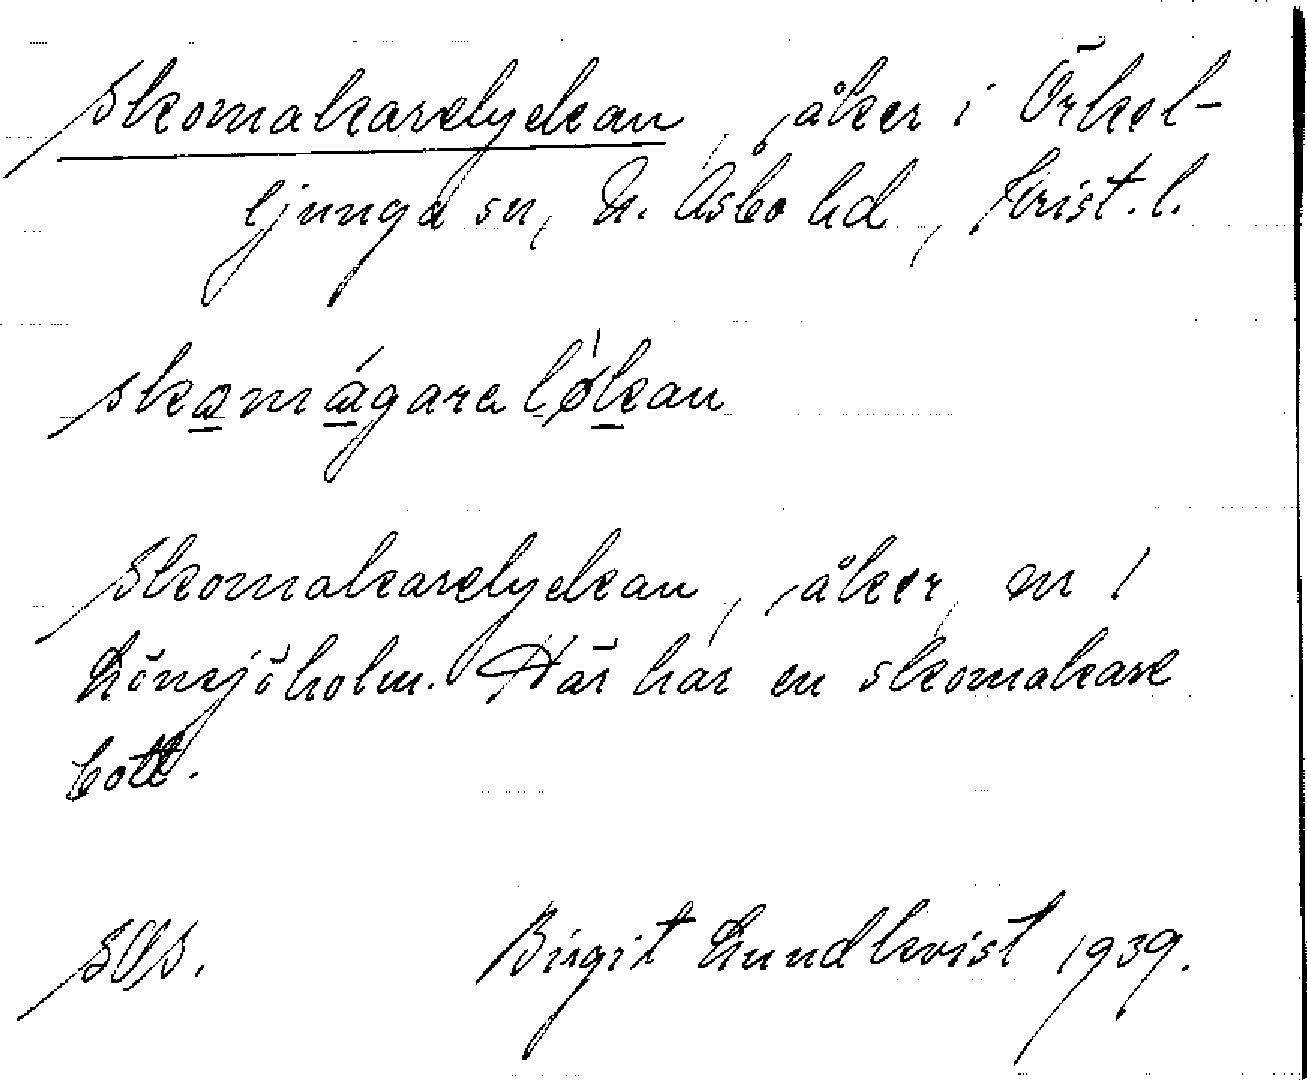 Skomakarelyckan, åker i Örkel-
ljunga sn, N. Åsbo hd, Krist. l.
skomágarelø̀kan
Skomakarelyckan, åker, en i
Lönsjöholm. Här har en skomakare
bott.
Birgit Lundkvist 1939.